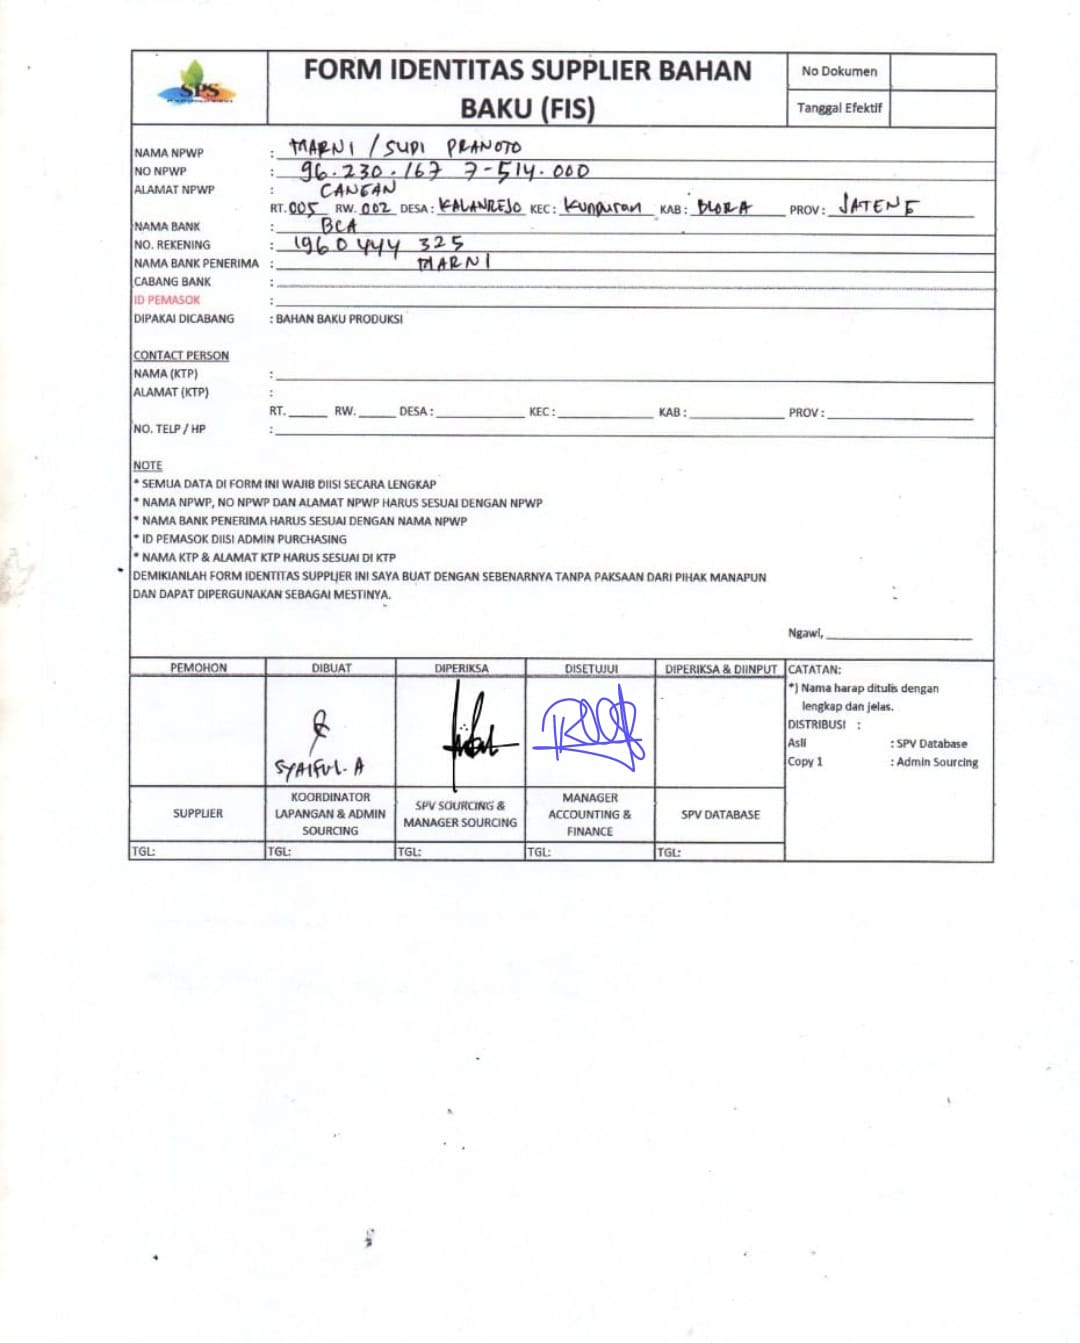 SPS
FORM IDENTITAS SUPPLIER BAHAN
BAKU (FIS)
No Dokumen
Tanggal Efektif
NAMA NPWP : MARNI / SUPI PRANOTO
NO NPWP : 96.230.167 7-514.000
ALAMAT NPWP : CANGAN
RT. 005 RW. 002 DESA : KALANREJO KEC : Kunduran KAB : BLORA PROV : JATENG
NAMA BANK : BCA
NO. REKENING : 1960 444 325
NAMA BANK PENERIMA : MARNI
CABANG BANK :
ID PEMASOK :
DIPAKAI DICABANG : BAHAN BAKU PRODUKSI
CONTACT PERSON
NAMA (KTP) :
ALAMAT (KTP) :
RT. RW. DESA : KEC : KAB : PROV :
NO. TELP / HP :
NOTE
* SEMUA DATA DI FORM INI WAJIB DIISI SECARA LENGKAP
* NAMA NPWP, NO NPWP DAN ALAMAT NPWP HARUS SESUAI DENGAN NPWP
* NAMA BANK PENERIMA HARUS SESUAI DENGAN NAMA NPWP
* ID PEMASOK DIISI ADMIN PURCHASING
* NAMA KTP & ALAMAT KTP HARUS SESUAI DI KTP
DEMIKIANLAH FORM IDENTITAS SUPPLIER INI SAYA BUAT DENGAN SEBENARNYA TANPA PAKSAAN DARI PIHAK MANAPUN
DAN DAPAT DIPERGUNAKAN SEBAGAI MESTINYA.
Ngawi,
PEMOHON DIBUAT DIPERIKSA DISETUJUI DIPERIKSA & DIINPUT
SYAIFUL. A
SUPPLIER
KOORDINATOR
LAPANGAN & ADMIN
SOURCING
SPV SOURCING &
MANAGER SOURCING
MANAGER
ACCOUNTING &
FINANCE
SPV DATABASE
TGL: TGL: TGL: TGL: TGL:
CATATAN:
*) Nama harap ditulis dengan
lengkap dan jelas.
DISTRIBUSI :
Asli : SPV Database
Copy 1 : Admin Sourcing